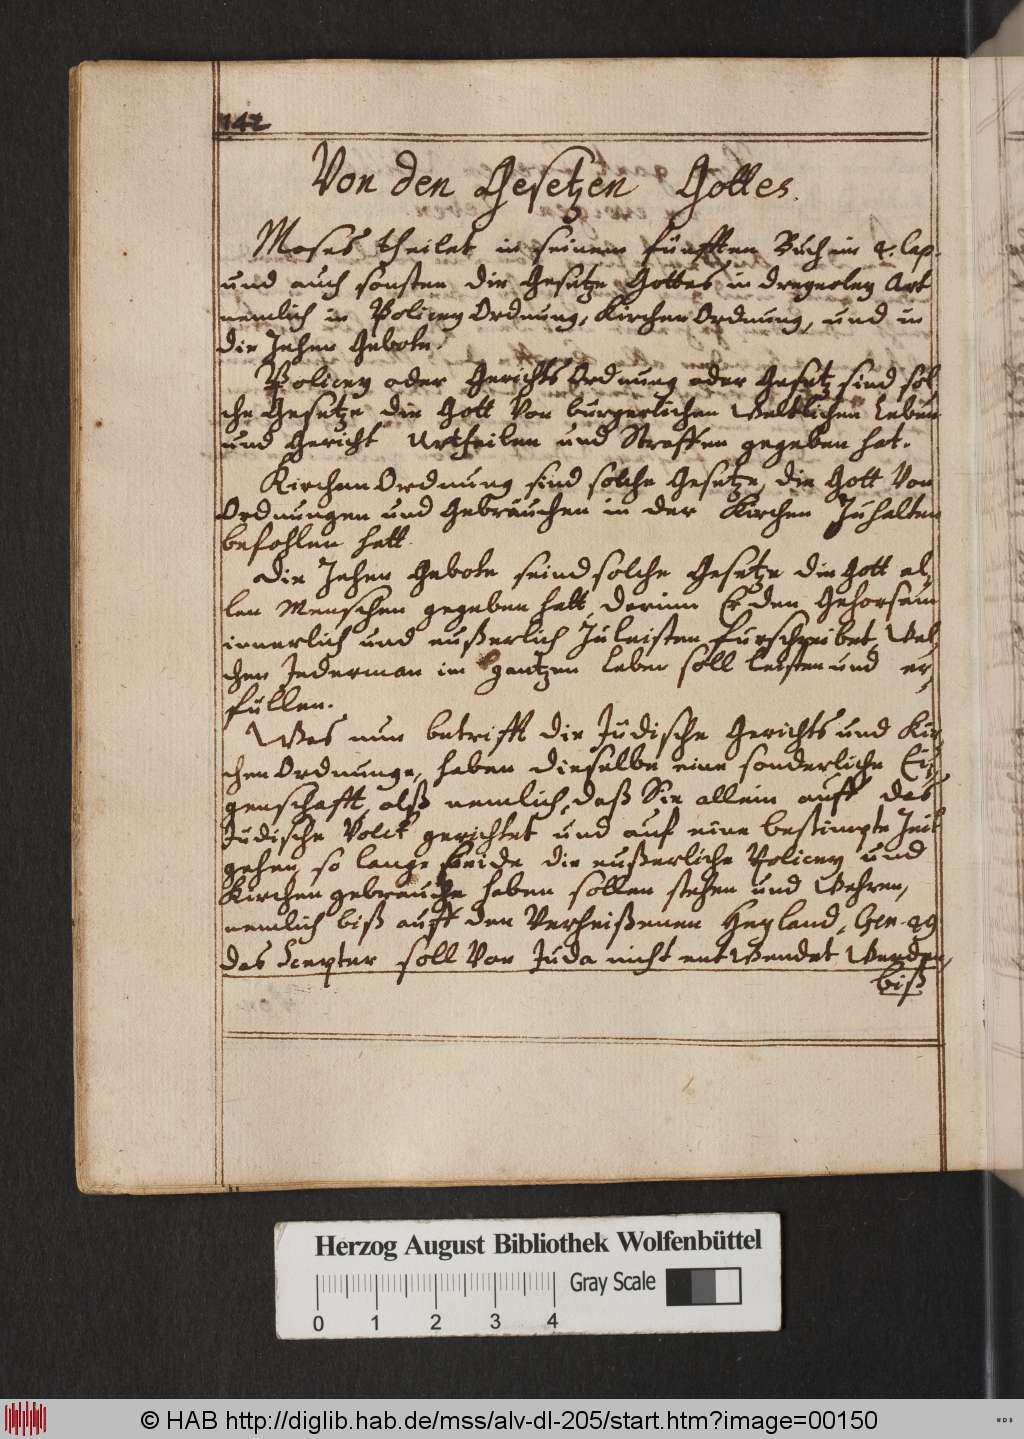 142
Von den Gesetzen Gottes.
Moses theilet in seinem fünfften Buch im 4. Cap.
und auch sonsten die Gesetze Gottes in dreyerley Art
nemlich in Policey Ordnung, Kirchen Ordnung, und in
die Zehen Gebote.
Policey oder Gerichts Ordnung oder Gesetz sind sol
che Gesetze die Gott Von burgerlichen Weltlichen Leben
und Gericht Urtheilen und Straffen gegeben hat.
Kirchen Ordnung sind solche Gesetze, die Gott Von
Ordnungen und Gebräuchen in der Kirchen Zuhalten
befohlen hatt.
Die Zehen Gebote seind solche Gesetze die Gott al,
len Menschen gegeben hatt, darinn Er den Gehorsam
innerlich und eußerlich Zuleisten fürschreibet, Wel,
chen Jederman im gantzen Leben soll leisten und er,
füllen.
Was nun betrifft die Jüdische Gerichts und Kir,
chen Ordnunge, haben dieselbe eine sonderliche Ei,
genschafft, alß nemlich, daß Sie allein auff das
Jüdische Volck gerichtet und auf eine bestimpte Zeit
gehen, so lange beide die eußerliche Policey und
Kirchen gebräuche haben sollen stehen und Wehren,
nemlich biß auff den Verheißenen Heyland, Gen. 49
das Scepter soll Von Juda nicht entwendet Werden,
biß
Herzog August Bibliothek Wolfenbüttel
Gray Scale
0 1 2 3 4
© HAB http://diglib.hab.de/mss/alv-dl-205/start.htm?image=00150